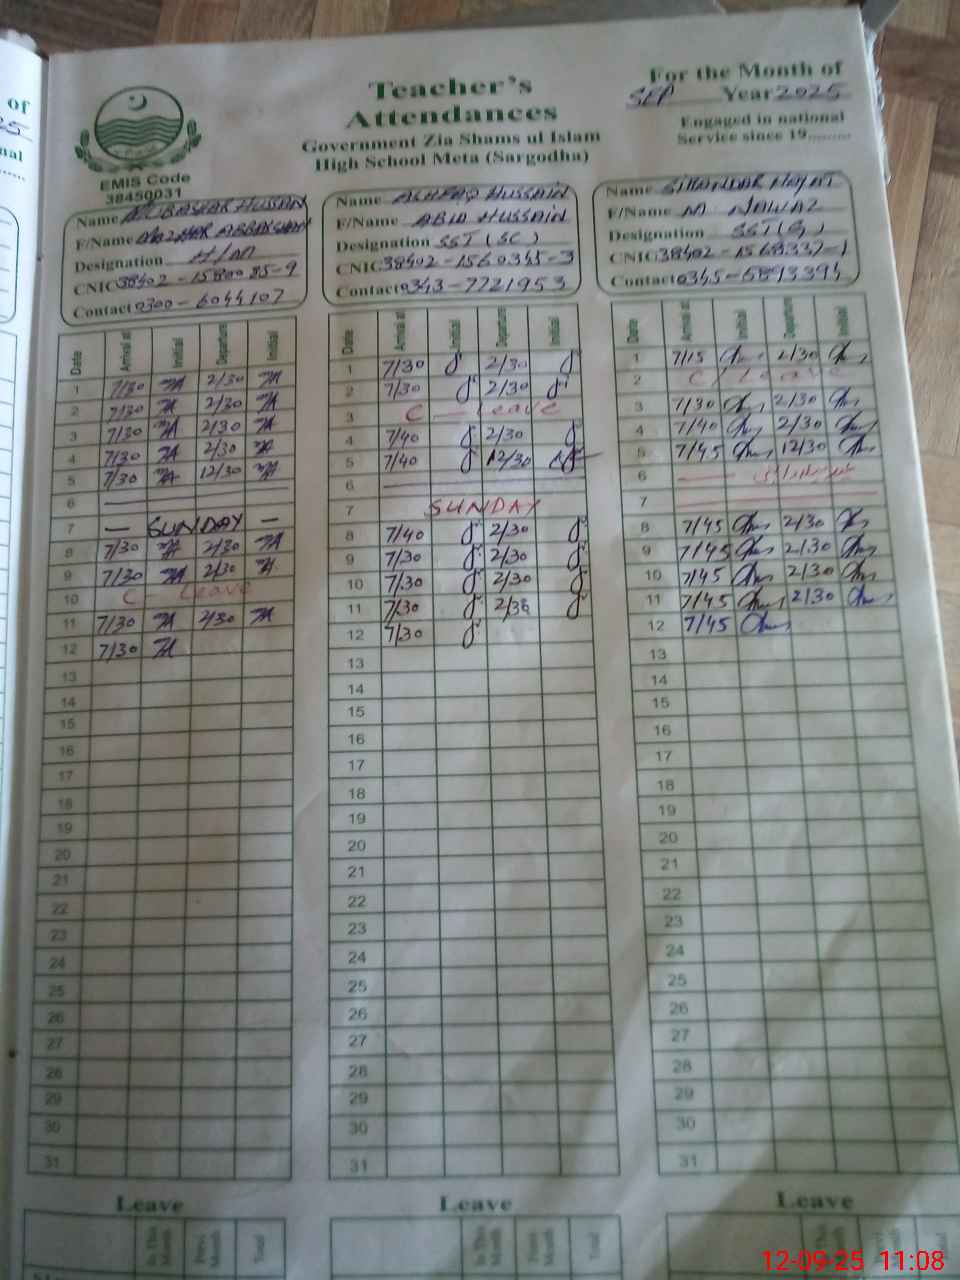 of
25
nal
Teacher's
Attendances
Government Zia Shams ul Islam
High School Meta (Sargodha)
For the Month of
SEP Year 2025
Engaged in national
Service since 19........
EMIS Code
38450031
Name MUBASHAR HUSSAIN
F/Name MAZHAR ABBAS
Designation H/M
CNIC 38402-1580085-9
Contact 0300-6044107
Date Arrival at Initial Departure Initial
1 7/30 2/30
2 7/30 2/30
3 7/30 2/30
4 7/30 2/30
5 7/30 12/30
6
7 — SUNDAY —
8 7/30 2/30
9 7/30 2/30
10 C — Leave
11 7/30 2/30
12 7/30
13
14
15
16
17
18
19
20
21
22
23
24
25
26
27
28
29
30
31
Leave
In This Month Prev: Month Total
Name ASHFAQ HUSSAIN
F/Name ABID HUSSAIN
Designation SST (SC)
CNIC 38402-1560345-3
Contact 0343-7721953
Date Arrival at Initial Departure Initial
1 7/30 2/30
2 7/30 2/30
3 C — Leave
4 7/40 2/30
5 7/40 12/30
6
7 SUNDAY
8 7/40 2/30
9 7/30 2/30
10 7/30 2/30
11 7/30 2/30
12 7/30
13
14
15
16
17
18
19
20
21
22
23
24
25
26
27
28
29
30
31
Leave
In This Month Prev: Month Total
Name SIKANDAR HAYAT
F/Name M NAWAZ
Designation SST (G)
CNIC 38402-1568337-1
Contact 0345-6893394
Date Arrival at Initial Departure Initial
1 7/15 2/30
2 C/ Leave
3 7/30 2/30
4 7/40 2/30
5 7/45 12/30
6
7
8 7/45 2/30
9 7/45 2/30
10 7/45 2/30
11 7/45 2/30
12 7/45
13
14
15
16
17
18
19
20
21
22
23
24
25
26
27
28
29
30
31
Leave
In This Month Prev: Month Total
12-09-25 11:08